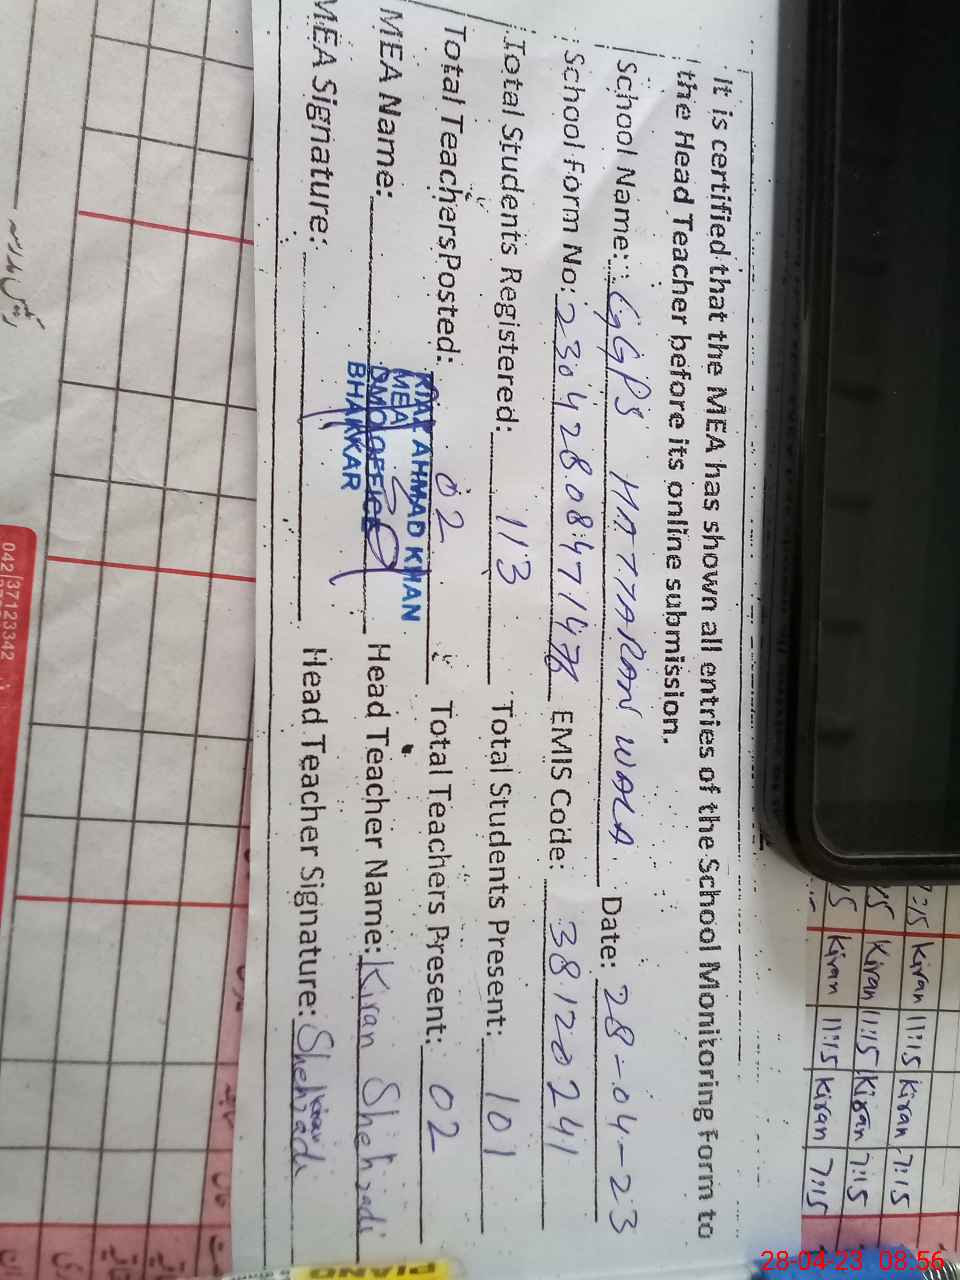 It is certified that the MEA has shown all entries of the School Monitoring Form to
the Head Teacher before its online submission.
School Name: GGPS HATTARAN WALA Date: 28-04-23
School Form No: 2304280847147 EMIS Code: 38120241
Total Students Registered: 113 Total Students Present: 101
Total Teachers Posted: 02 Total Teachers Present: 02
MEA Name: Head Teacher Name: Kiran Shehzadi
MEA Signature: Head Teacher Signature: Shehzadi
Kiran
AHMAD KHAN
MEA
DMO OFFICE
BHAKKAR
7:15 Kiran 11:15 Kiran 7:15
Kiran 11:15 Kiran 7:15
Kiran 11:15 Kiran 7:15
042 37123342
PIANO
28-04-23 08:56